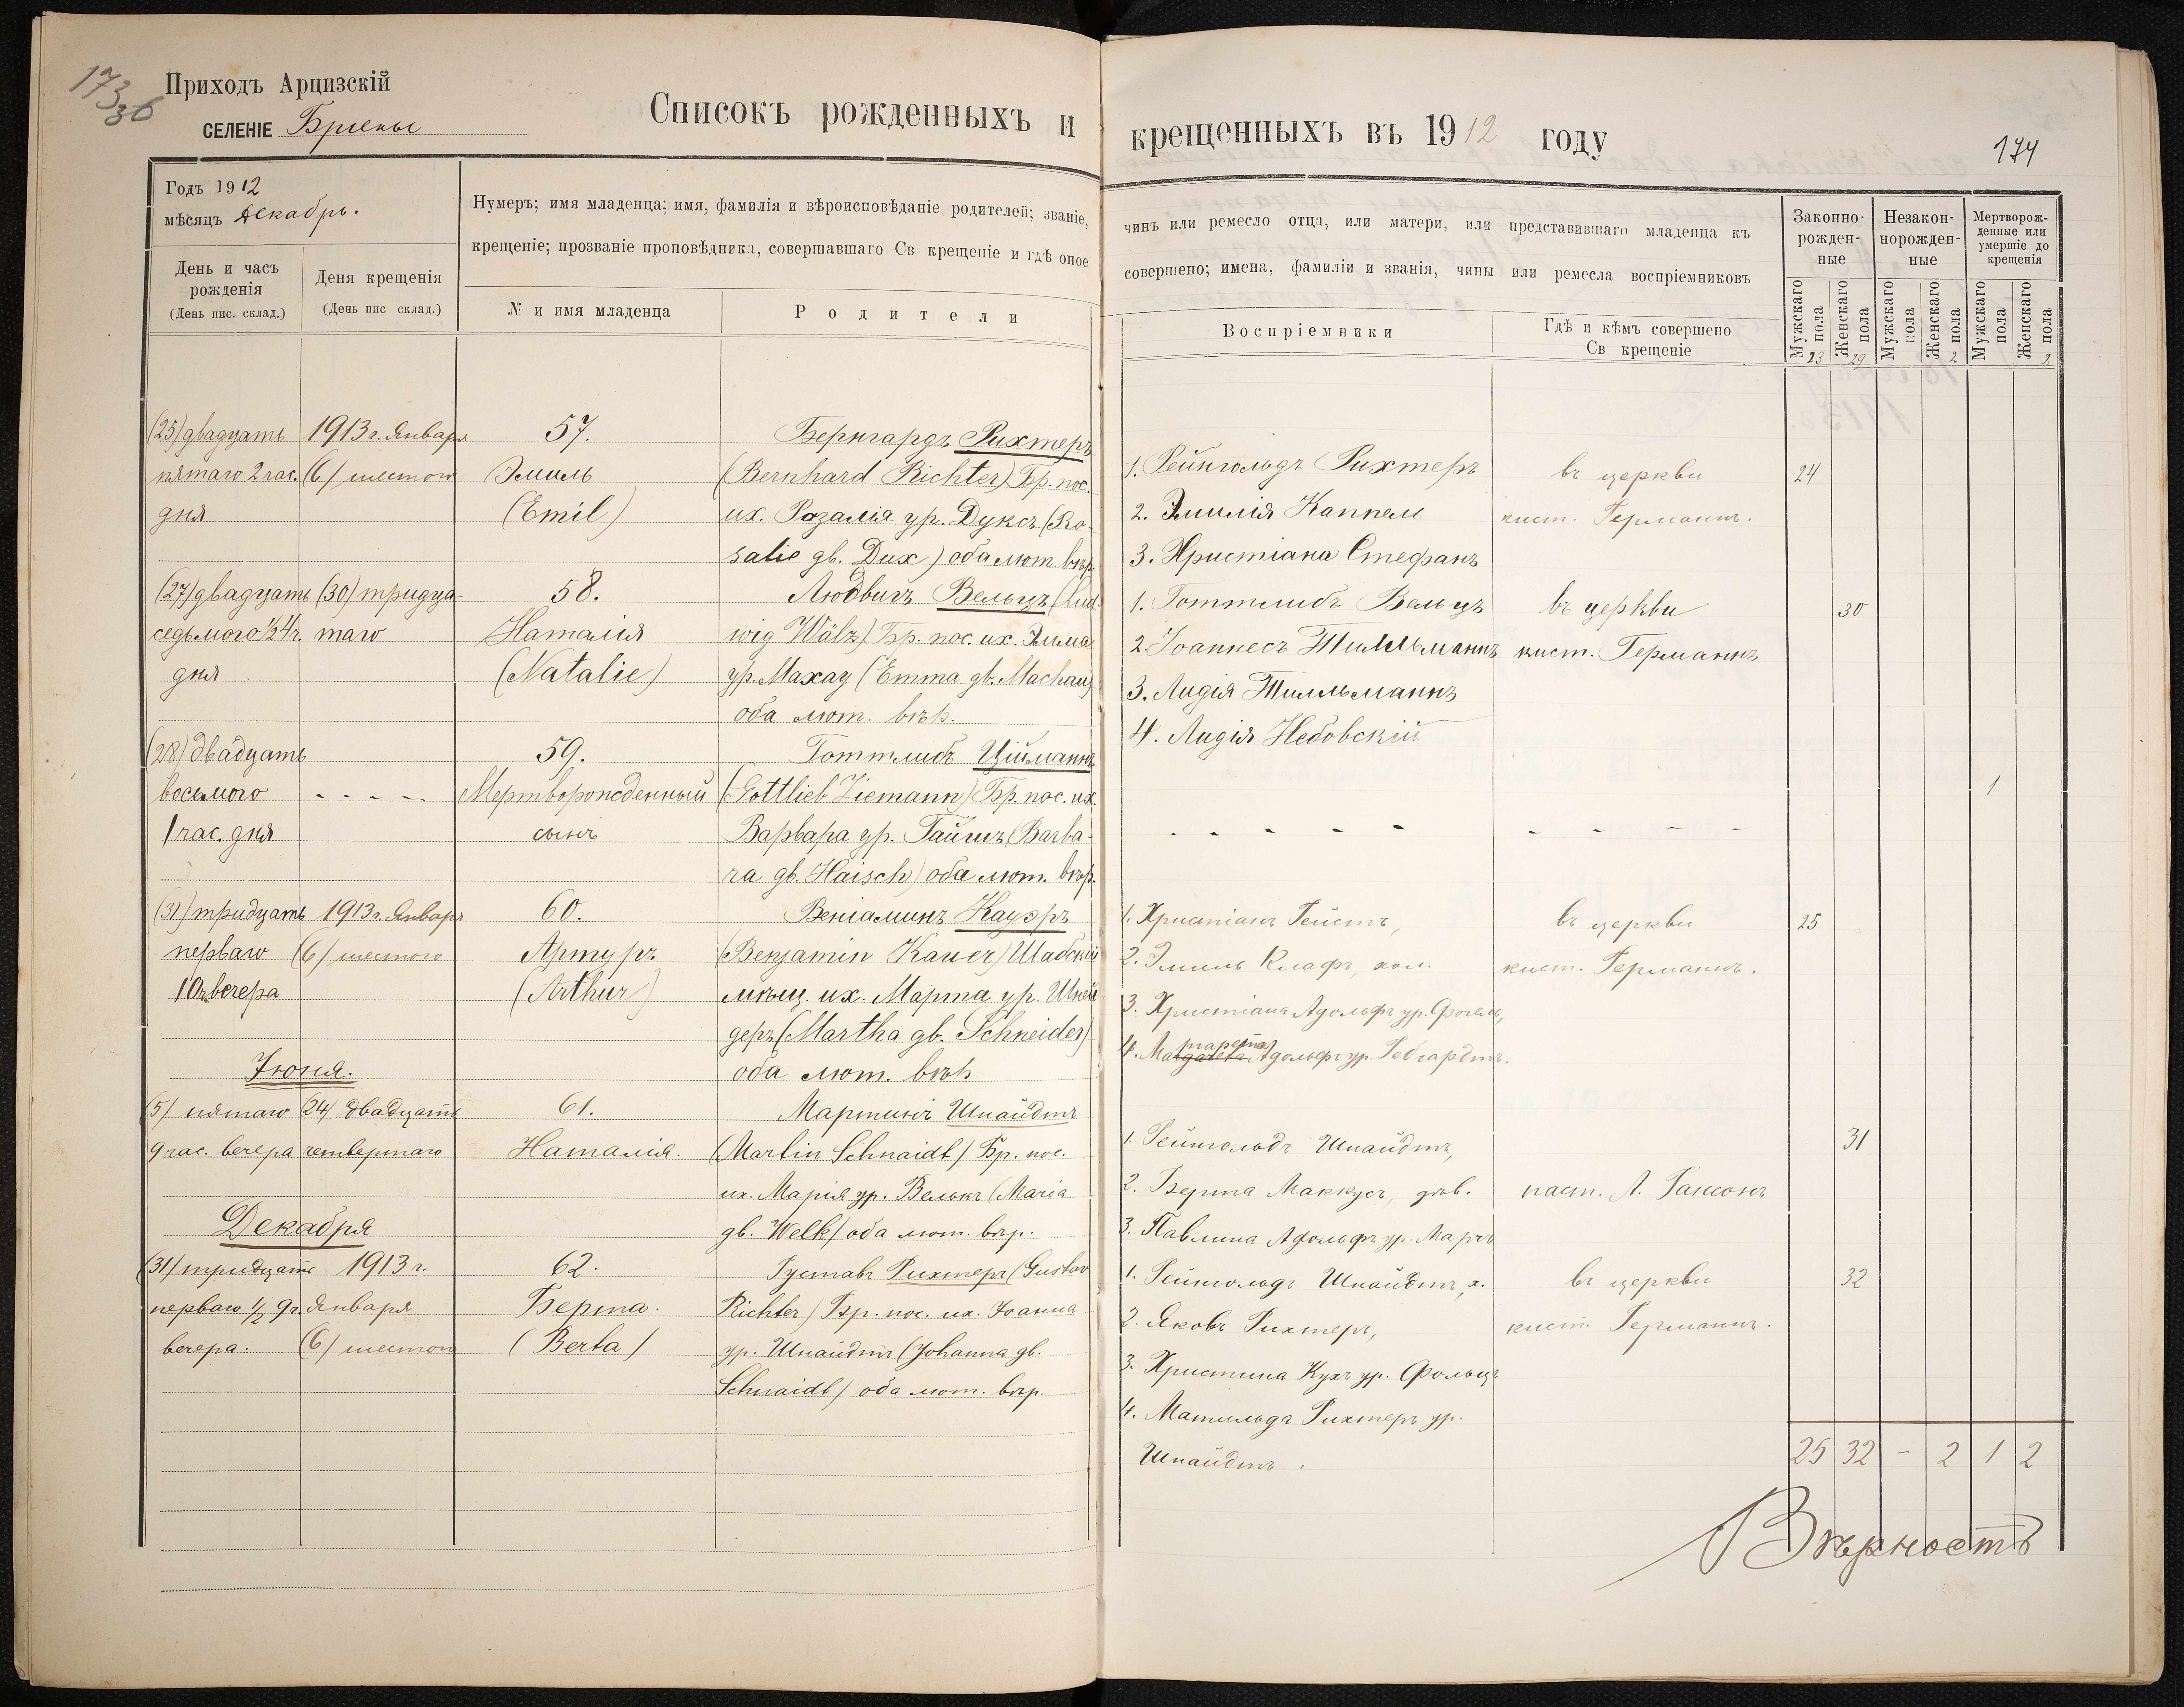 173 зб
Приходъ Арцизскій
СЕЛЕНІЕ Бріены
Списокъ рожденныхъ и
Годъ 1912
мѣсяцъ Декабрь.
Нумеръ; имя младенца; имя, фамилія и вѣроисповѣданіе родителей; званіе,
крещеніе; прозваніе проповѣдника, совершавшаго Св крещеніе и гдѣ оное
День и часъ рожденія
(День пис. склад.)
Деня крещенія
(День пис склад.)
№ и имя младенца
Родители
(25) двадцать 1913 г. Января 57. Бернгардъ Рихтеръ
пятаго 2 час. (6) шестого Эмиль (Bernhard Richter) Бр. пос.
дня (Emil) их. Розалія ур. Дуксъ (Ro-
salie gb. Dux) оба лют. вѣр.
(27) двадцать (30) тридца- 58. Людвигъ Вельцъ (Lud-
седьмого ½4 ч. таго Наталія wig Wälz) Бр. пос. их. Эмма
дня (Natalie) ур. Махау (Emma gb. Machau)
оба лют. вѣр.
(28) двадцать 59. Готтлибъ Ційманнъ
восьмого - - - - Мертворожденный (Gottlieb Ziemann) Бр. пос. их.
1 час. дня сынъ Варвара ур. Гайшъ (Barba-
ra gb. Haisch) оба лют. вѣр.
(31) тридцать 1913 г. Января 60. Веніаминъ Кауэръ
перваго (6) шестого Артуръ (Benjamin Kauer) Шабскій
10 ч. вечера (Arthur) мѣщ. их. Марта ур. Шней-
деръ (Martha gb. Schneider)
Іюня. оба лют. вѣр.
(5) пятаго (24) двадцать 61. Мартинъ Шнайдтъ
9 час. вечера четвертаго Наталія. (Martin Schnaidt) Бр. пос.
их. Марія ур. Велькъ (Maria
Декабря gb. Welk) оба лют. вѣр.
(31) тридцать 1913 г. 62. Густавъ Рихтеръ (Gustav
перваго ½ 9 ч. Января Берта. Richter) Бр. пос. их. Іоанна
вечера. (6) шестого (Berta) ур. Шнайдтъ (Johanna gb.
Schnaidt) оба лют. вѣр.
крещенныхъ въ 1912 году
174
чинъ или ремесло отца, или матери, или представившаго младенца къ
совершено; имена, фамиліи и званія, чины или ремесла воспріемниковъ
Воспріемники
Гдѣ и кѣмъ совершено
Св крещеніе
Законно-
рожден-
ные
Незакон-
норожден-
ные
Мертворож-
денные или
умершіе до
крещенія
Мужскаго пола 23
Женскаго пола 29
Мужскаго пола
Женскаго пола 2
Мужскаго пола
Женскаго пола 2
1. Рейнгольдъ Рихтеръ въ церкви 24
2. Эмилія Каппель кист. Германнъ.
3. Христіана Стефанъ
1. Готтлибъ Вельцъ въ церкви 30
2. Іоаннесъ Тилльманнъ кист. Германнъ
3. Лидія Тилльманнъ
4. Лидія Небовскій
1
- - - - - - - - -
1. Христіанъ Гейстъ, въ церкви 25
2. Эмиль Клафъ, хол. кист. Германнъ.
3. Христіана Адольфъ ур. Фогель,
4. Маргарета Адольфъ ур. Гебгардтъ.
31
1. Рейнгольдъ Шнайдтъ,
2. Берта Маккусъ, дѣв. паст. А. Гансонъ
3. Павлина Адольфъ ур. Маръ
1. Рейнгольдъ Шнайдтъ, х. въ церкви 32
2. Яковъ Рихтеръ, кист. Германнъ.
3. Христина Кухъ ур. Фольцъ
4. Матильда Рихтеръ ур.
Шнайдтъ.
25 32 - 2 1 2
Вѣрность